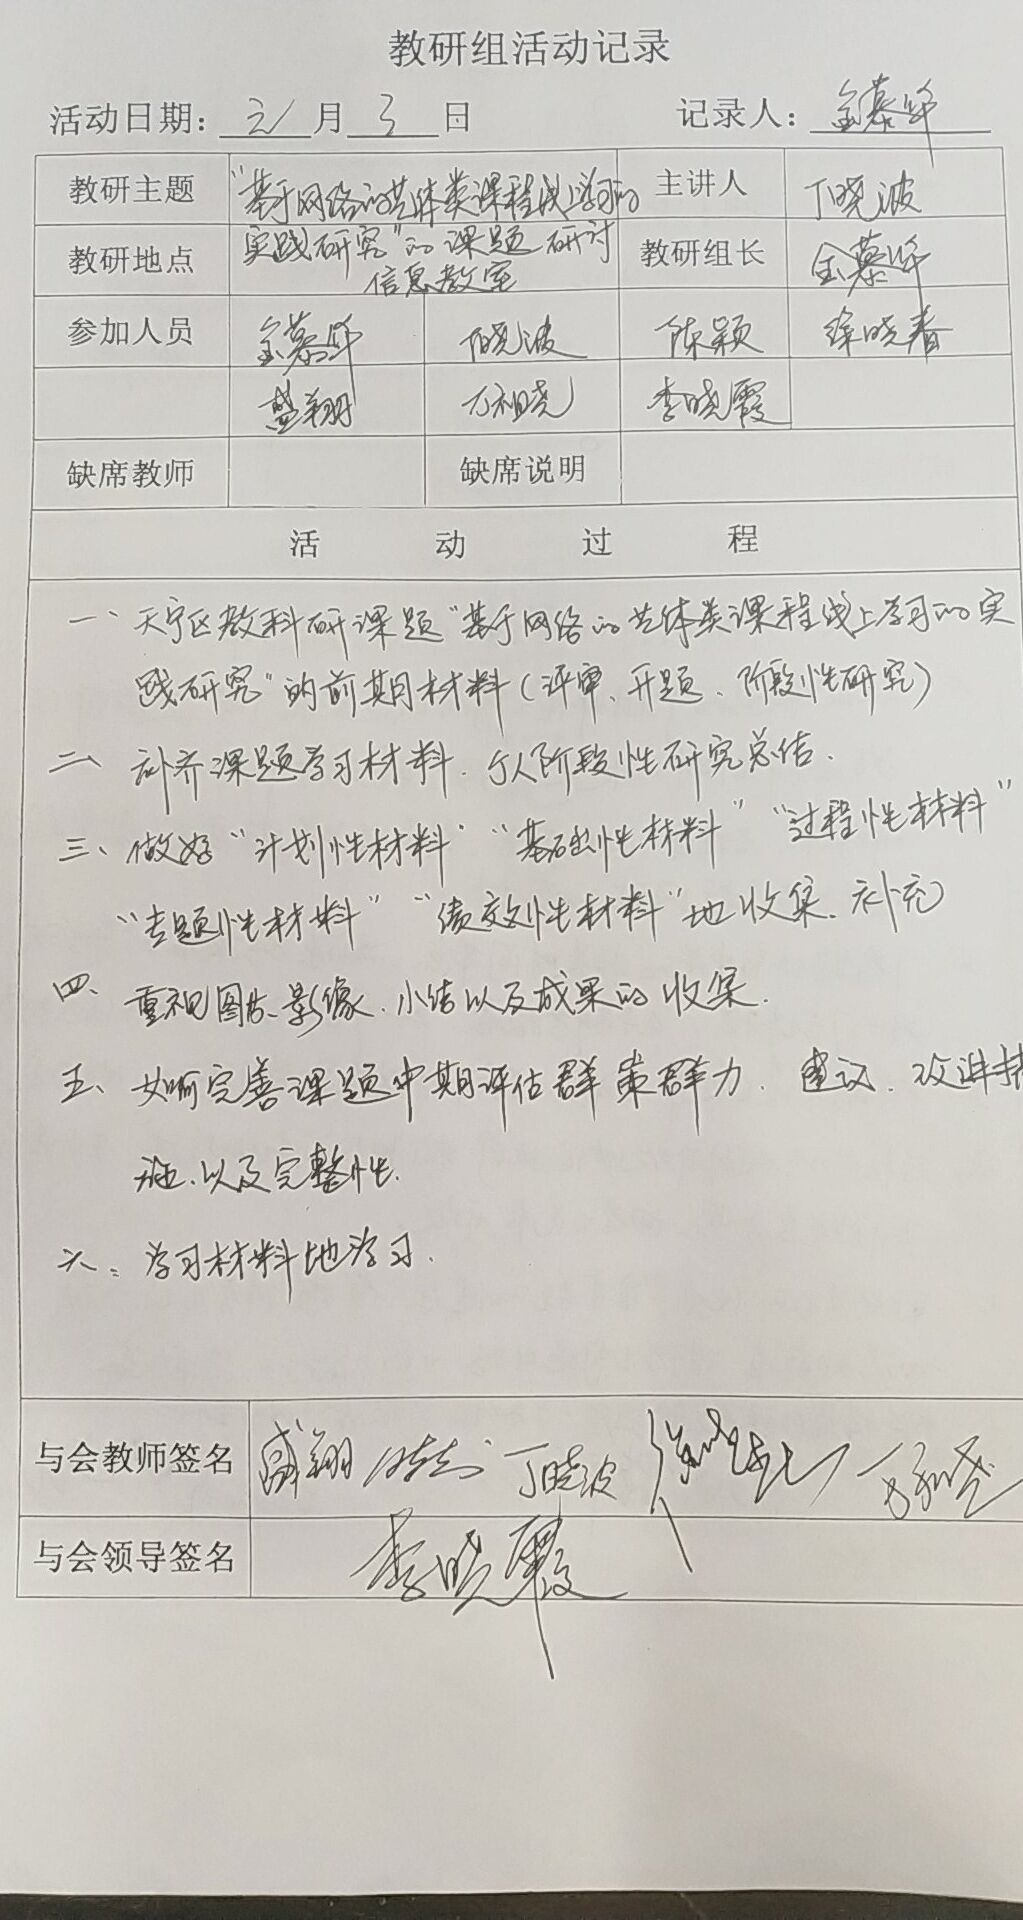 教研组活动记录
活动日期：元月3日 记录人：金慕华
教研主题 "基于网络的艺体类课程线上学习的 主讲人 丁晓波
实践研究"的课题研讨
教研地点 信息教室 教研组长 金慕华
参加人员 金慕华 丁晓波 陈颖 徐晓春
盛翔 万祖晓 李晓霞
缺席教师 缺席说明
活动过程
一、天宁区教科研课题"基于网络的艺体类课程线上学习的实
践研究"的前期材料（评审、开题、阶段性研究）
二、补齐课题学习材料、个人阶段性研究总结.
三、做好"计划性材料""基础性材料""过程性材料"
"专题性材料""绩效性材料"地收集、补充
四、重视图片、影像、小结以及成果的收集.
五、如何完善课题中期评估群策群力、建议、改进措
施、以及完整性.
六、学习材料地学习.
与会教师签名 盛翔 丁晓波
与会领导签名 李晓霞